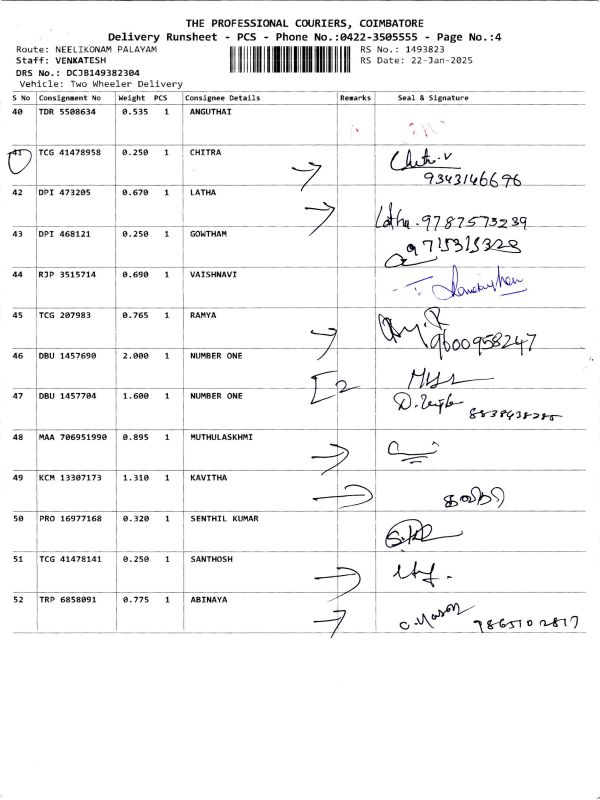 THE PROFESSIONAL COURIERS, COIMBATORE
Delivery Runsheet - PCS - Phone No.:0422-3505555 - Page No.:4
Route: NEELIKONAM PALAYAM RS No.: 1493823
Staff: VENKATESH RS Date: 22-Jan-2025
DRS No.: DCJB149382304
Vehicle: Two Wheeler Delivery
S No Consignment No Weight PCS Consignee Details Remarks Seal & Signature
40 TDR 5508634 0.535 1 ANGUTHAI
41 TCG 41478958 0.250 1 CHITRA Chitr.V
9343146696
42 DPI 473205 0.670 1 LATHA
Latha.9787573239
43 DPI 468121 0.250 1 GOWTHAM 9715315328
44 RJP 3515714 0.690 1 VAISHNAVI
45 TCG 207983 0.765 1 RAMYA
9600958247
46 DBU 1457690 2.000 1 NUMBER ONE
47 DBU 1457704 1.600 1 NUMBER ONE 2
8838438285
48 MAA 706951990 0.895 1 MUTHULASKHMI
49 KCM 13307173 1.310 1 KAVITHA
கவிதா
50 PRO 16977168 0.320 1 SENTHIL KUMAR
51 TCG 41478141 0.250 1 SANTHOSH
52 TRP 6858091 0.775 1 ABINAYA
9865102817